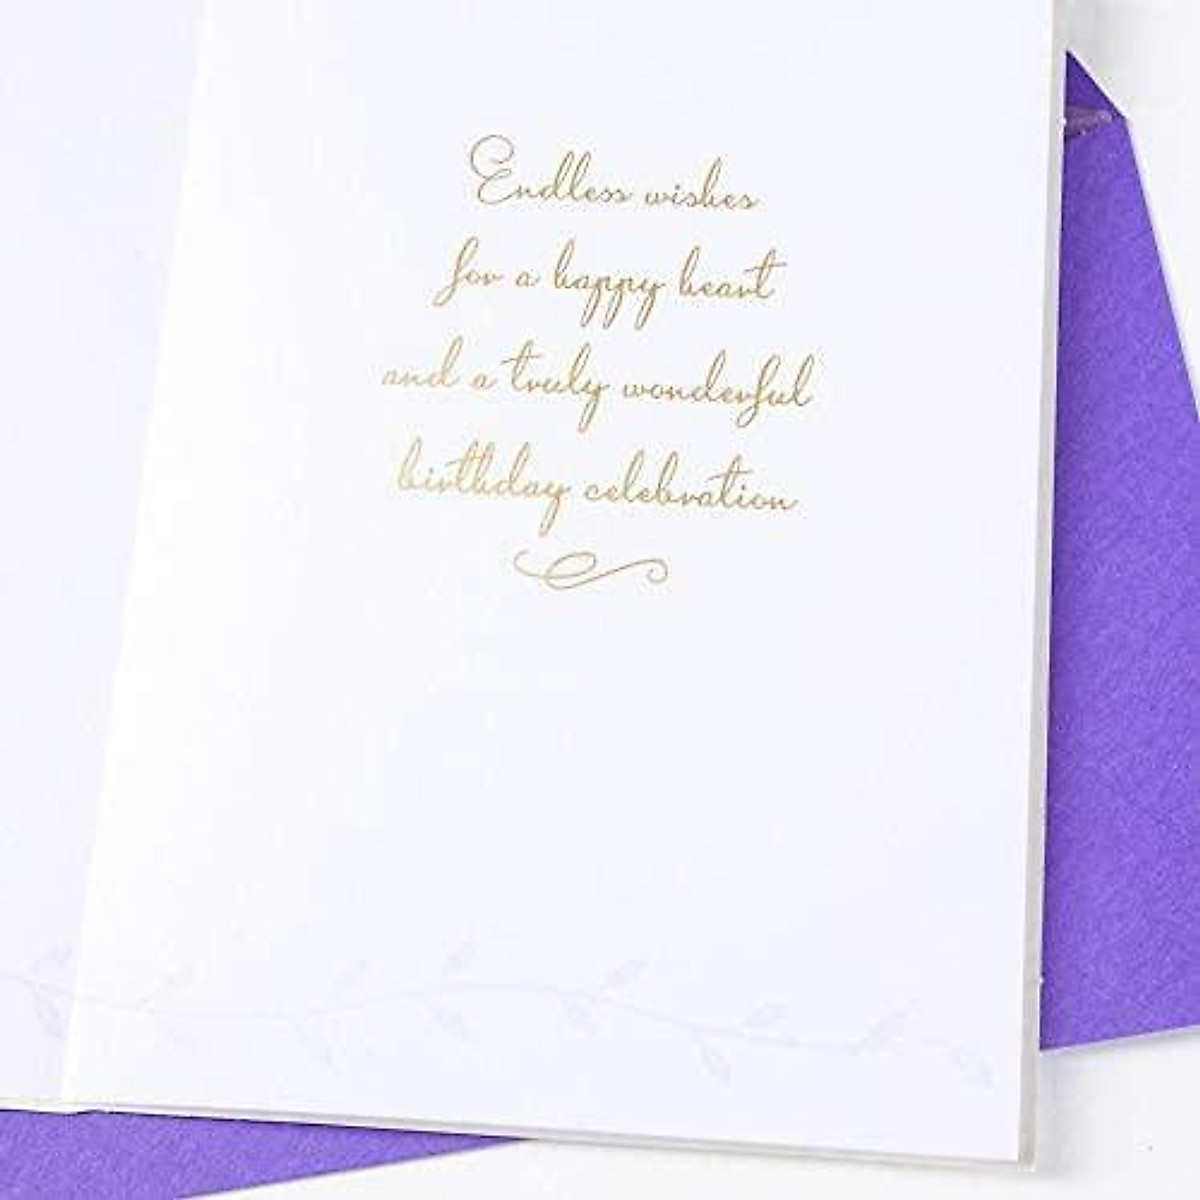 Endless wishes
for a happy heart
and a truly wonderful
birthday celebration